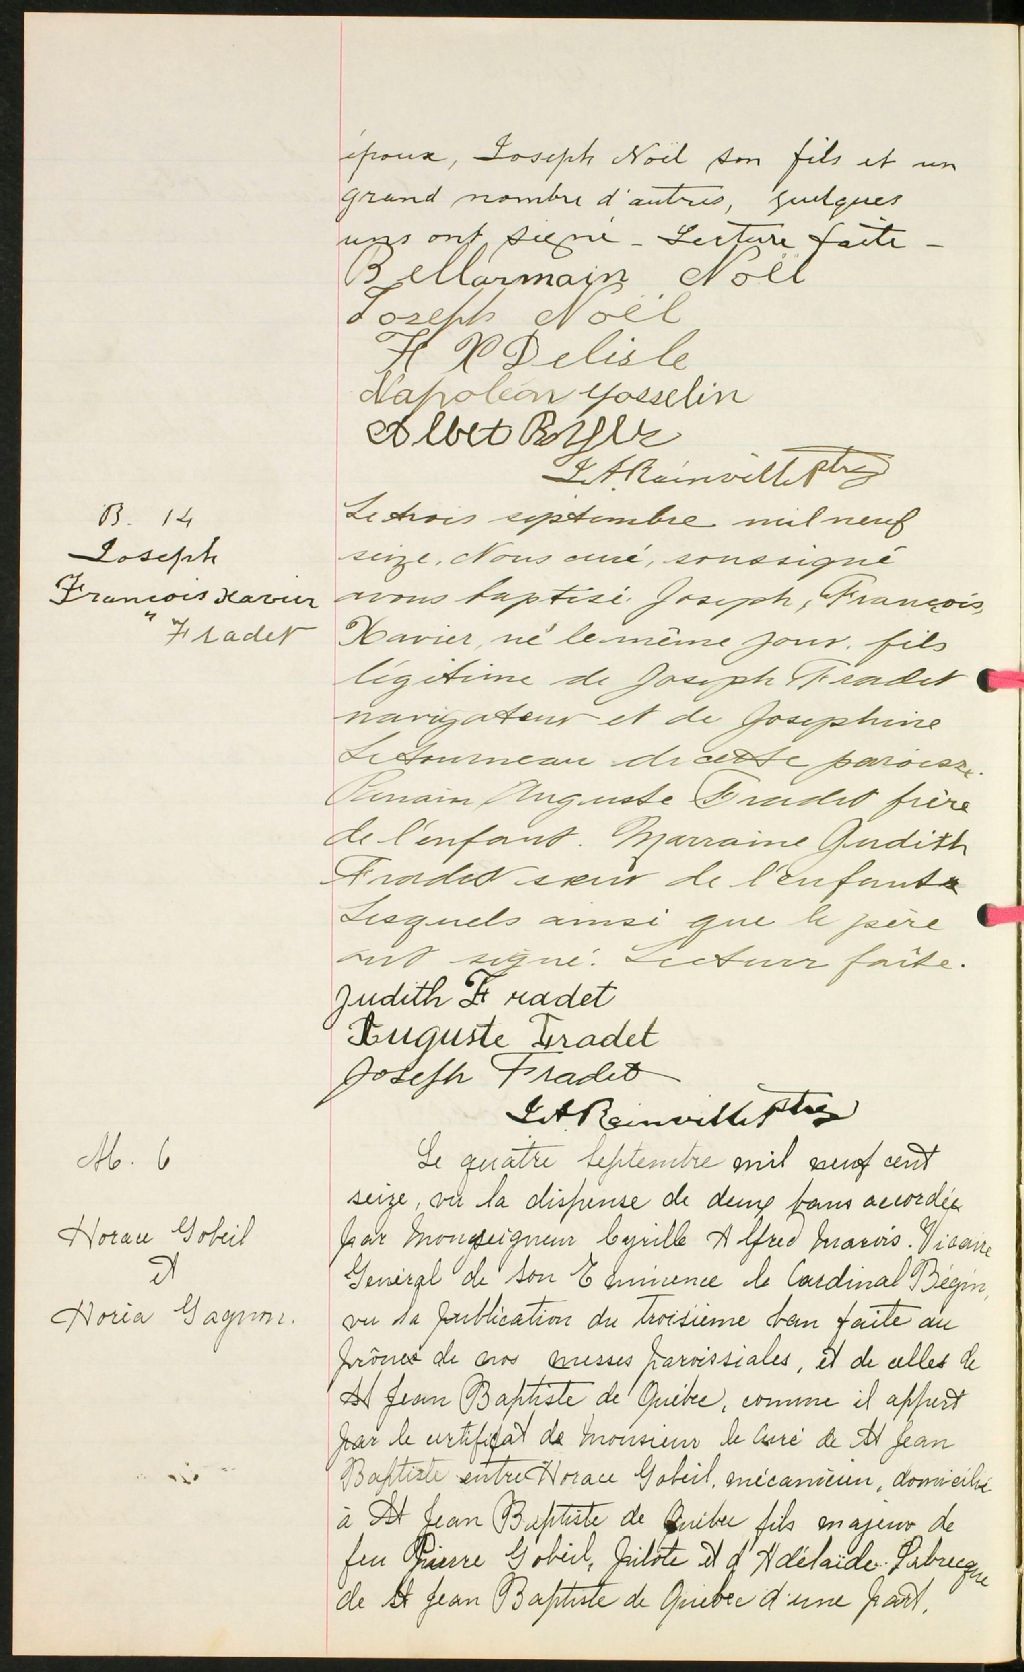 époux, Joseph Noël son fils et un
grand nombre d'autres, quelques
uns ont signé - Lecture faite -
Bellarmain Noël
Joseph Noël
F X Delisle
Napoléon Gosselin
Albet
J. A. Rainville Ptre
B. 14
Joseph
François Xavier
" Fradet
Le trois septembre mil neuf
seize, Nous curé, soussigné
avons baptisé Joseph, François,
Xavier, né le même jour, fils
légitime de Joseph Fradet
navigateur et de Josephine
Letourneau de cette paroisse.
Parrain Auguste Fradet frère
de l'enfant. Marraine Judith
Fradet sœur de l'enfant
Lesquels ainsi que le père
ont signé. Lecture faite.
Judith Fradet
Auguste Fradet
Joseph Fradet
J. A. Rainville Ptre
M. 6
Horace Gobeil
et
Noria Gagnon.
Le quatre Septembre mil neuf cent
seize, vu la dispense de deux bans accordée
par Monseigneur Cyrille Alfred Marois. Vicaire
Général de Son Eminence le Cardinal Bégin,
vu la publication du troisième ban faite au
prône de nos messes paroissiales, et de celles de
St Jean Baptiste de Québec, comme il appert
par le certificat de Monsieur le Curé de St Jean
Baptiste entre Horace Gobeil, mécanicien, domicilié
à St Jean Baptiste de Québec fils majeur de
feu Pierre Gobeil, pilote et d'Adélaïde Labrecque
de St Jean Baptiste de Québec d'une part,